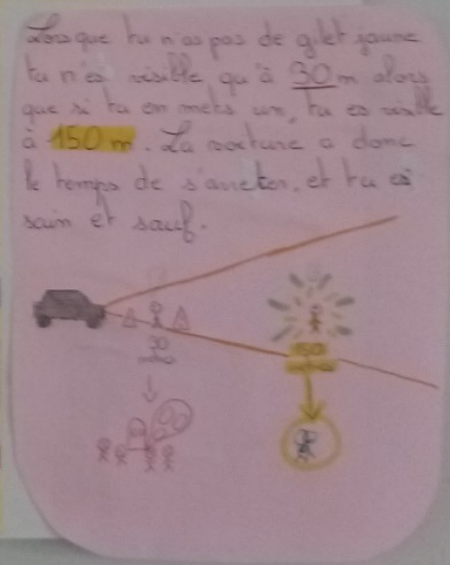 Lorsque tu n'as pas de gilet jaune
tu n'es visible qu'à 30 m alors
que si tu en mets un, tu es visible
à 150 m. La voiture a donc
le temps de s'arreter, et tu es
sain et sauf.
30
150